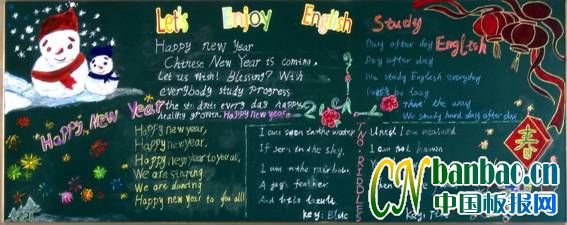 Let's Enjoy English
Happy new Year
Chinese New Year is coming.
Let us wish! Blessing? With
everybody study progress
the students every day happy
healthy grown. Happy new year
Study
English
Day after day
Day after day
We study English everyday
the way
We study hard day after day
Happy New Year
Happy new year,
Happy new year,
Happy new year to you all,
We are singing
We are dancing
Happy new year to you all!
TWO RIDDLES
I am seen in the water
If seen in the sky,
I am in the rainbow,
A jay's feather
And
key: Blue
Until I am measured
I am not known
key:
春
CNbanbao.cn
中国板报网